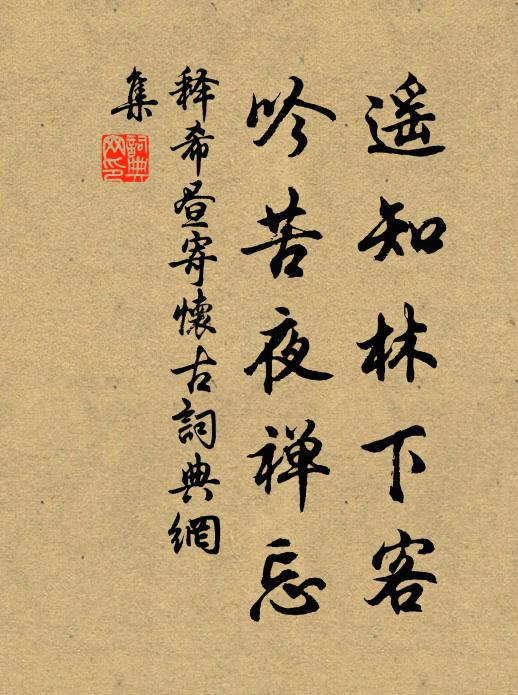 遥知林下客
吟苦夜禅忘
释希昼寄懷古詞典網
集
詞典
网印